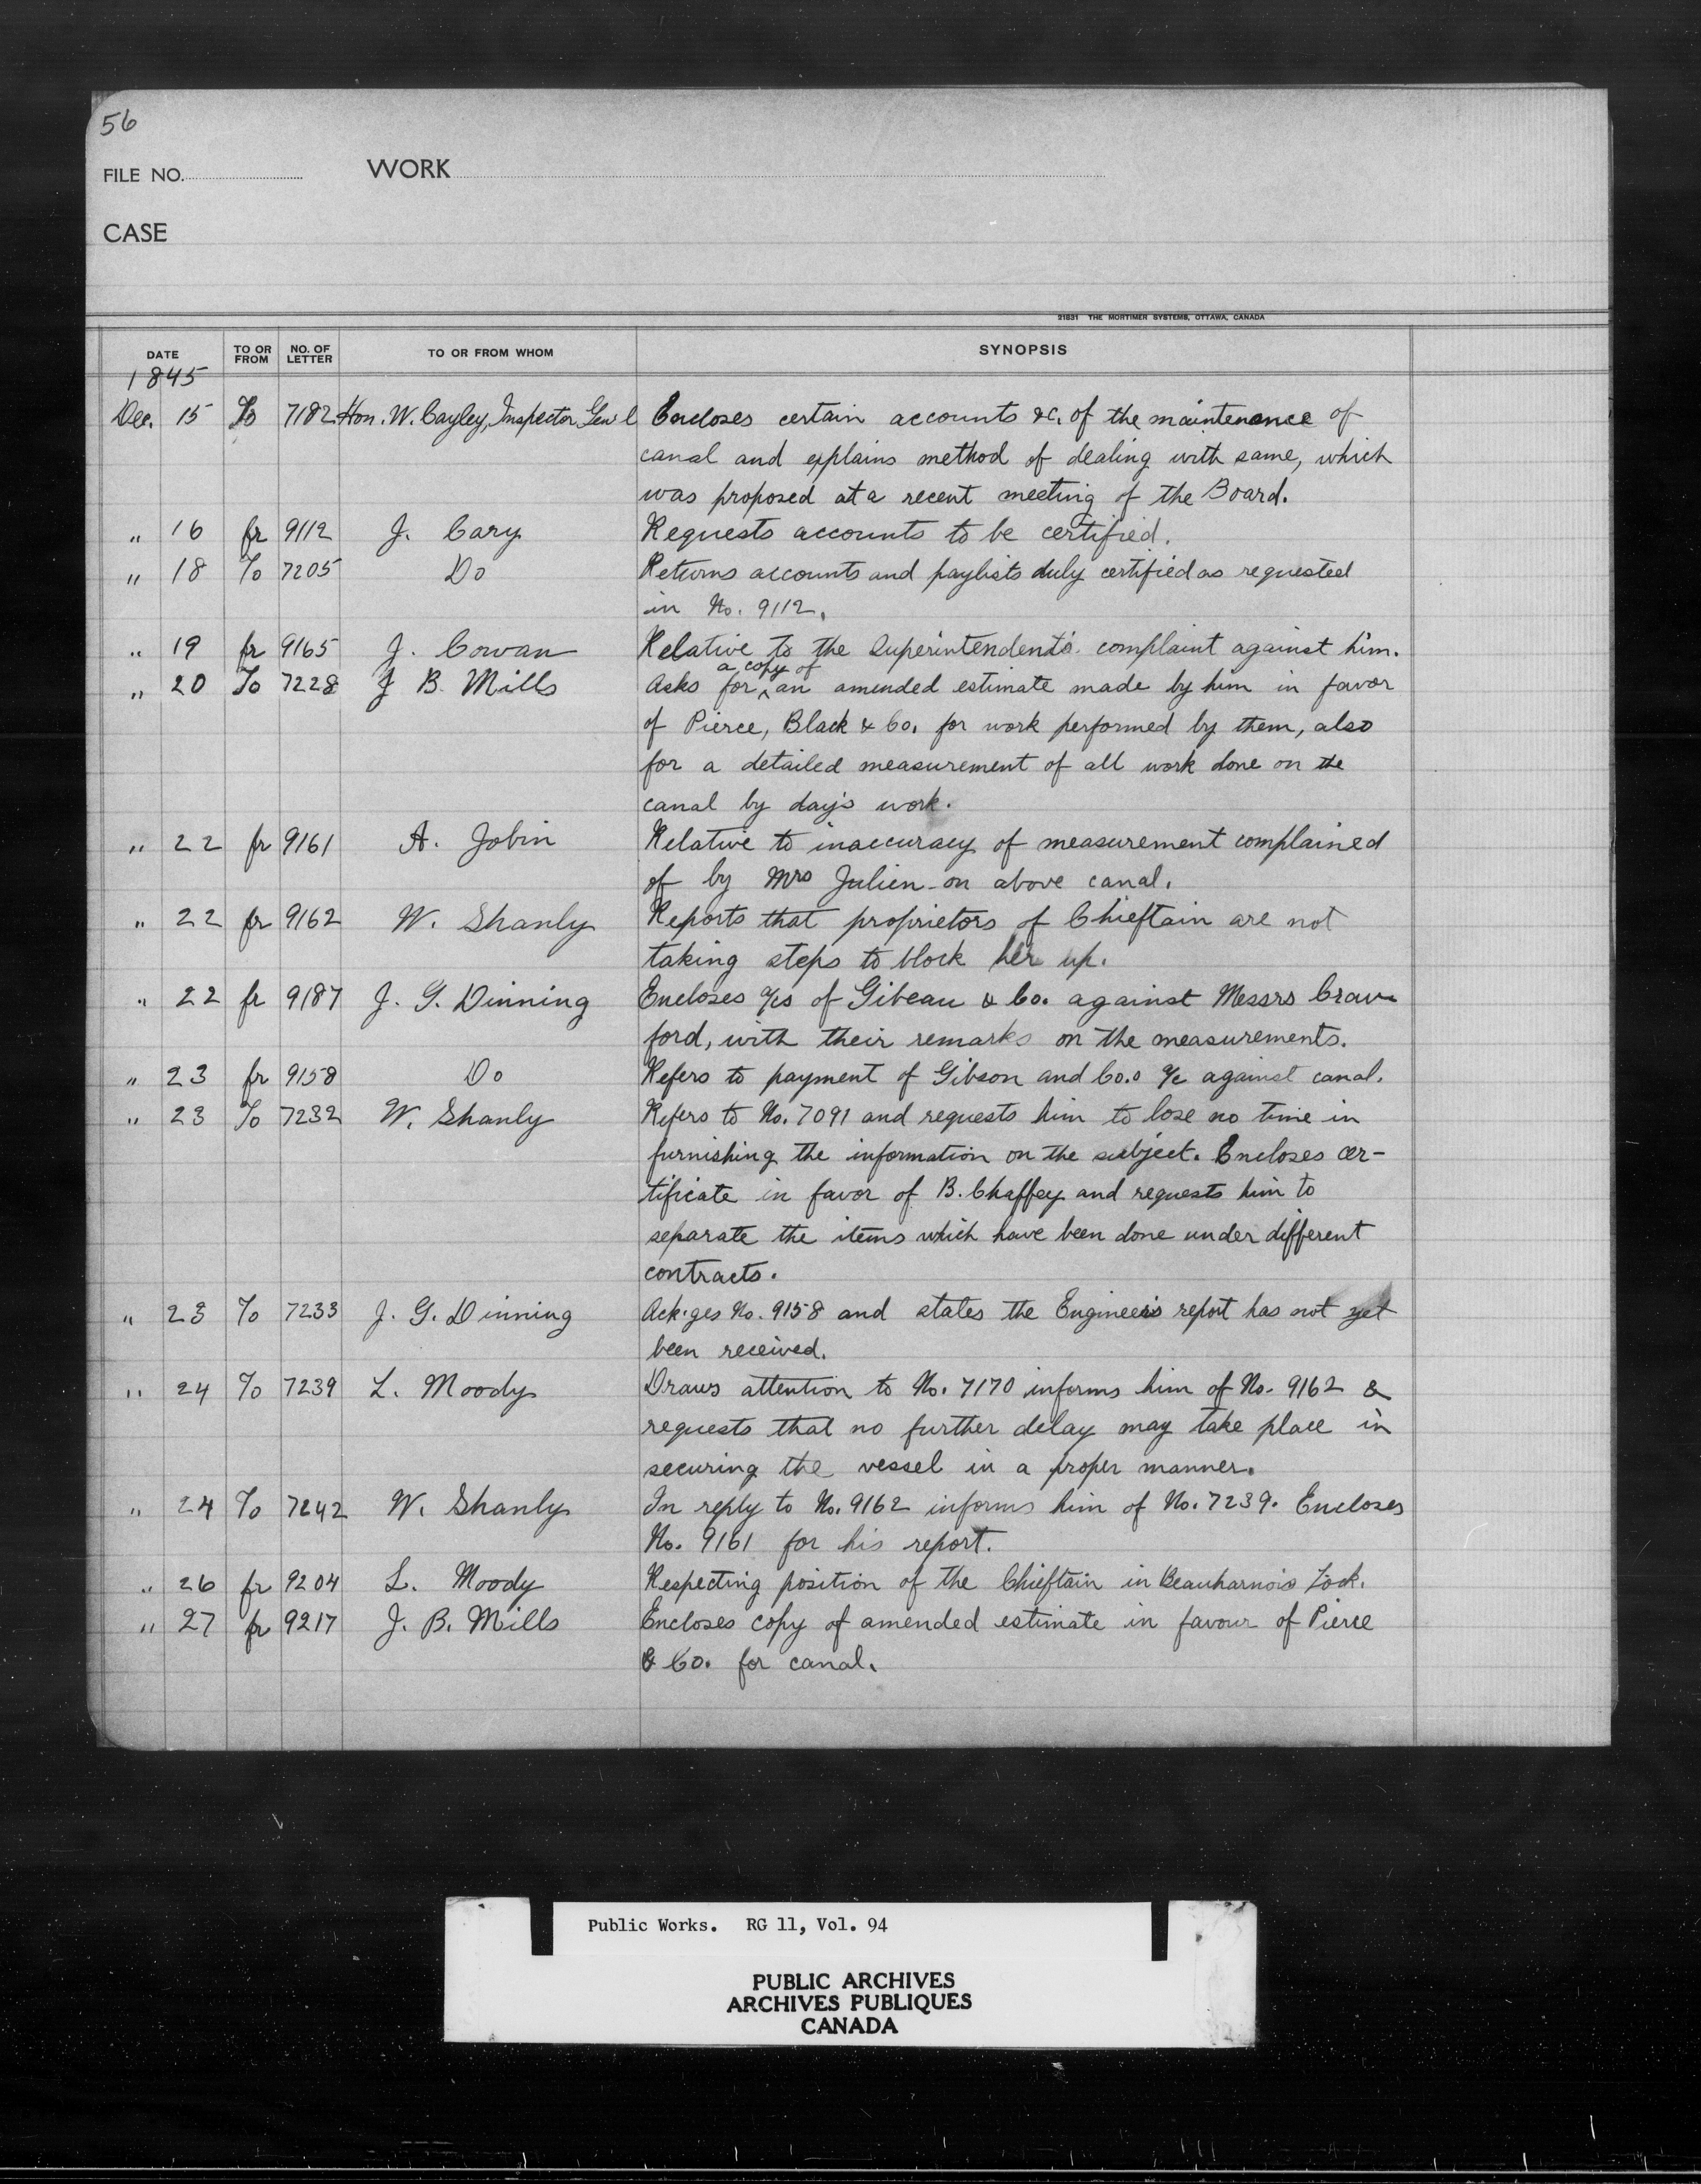 56
FILE NO. WORK
CASE
21831 THE MORTIMER SYSTEMS, OTTAWA, CANADA
DATE TO OR FROM NO. OF LETTER TO OR FROM WHOM SYNOPSIS
1845
Dec. 15 To 7182 Hon. W. Cayley, Inspector Gen'l Encloses certain accounts &c. of the maintenance of
canal and explains method of dealing with same, which
was proposed at a recent meeting of the Board.
" 16 fr 9112 J. Cary Requests accounts to be certified.
" 18 To 7205 Do Returns accounts and paylists duly certified as requested
in No. 9112.
" 19 fr 9165 J. Cowan Relative to the Superintendent's complaint against him.
a copy of
" 20 To 7228 J B. Mills Asks for ^ an amended estimate made by him in favor
of Pierce, Black & Co. for work performed by them, also
for a detailed measurement of all work done on the
canal by day's work.
" 22 fr 9161 A. Jobin Relative to inaccuracy of measurement complained
of by Mrs Julien on above canal.
" 22 fr 9162 W. Shanly Reports that proprietors of Chieftain are not
taking steps to block her up.
" 22 fr 9187 J. G. Dinning Encloses a/cs of Gibeau & Co. against Messrs Craw
ford, with their remarks on the measurements.
" 23 fr 9158 Do Refers to payment of Gibson and Co.s a/c against canal.
" 23 To 7232 W. Shanly Refers to No. 7091 and requests him to lose no time in
furnishing the information on the subject. Encloses cer-
tificate in favor of B. Chaffey and requests him to
separate the items which have been done under different
contracts.
" 23 To 7233 J. G. Dinning Ack'ges No. 9158 and states the Engineer's report has not yet
been received.
" 24 To 7239 L. Moody Draws attention to No. 7170 informs him of No. 9162 &
requests that no further delay may take place in
securing the vessel in a proper manner.
" 24 To 7242 W. Shanly In reply to No. 9162 informs him of No. 7239. Encloses
No. 9161 for his report.
" 26 fr 9204 L. Moody Respecting position of the Chieftain in Beauharnois Lock.
" 27 fr 9217 J. B. Mills Encloses copy of amended estimate in favour of Pierce
& Co. for canal.
Public Works. RG 11, Vol. 94
PUBLIC ARCHIVES
ARCHIVES PUBLIQUES
CANADA